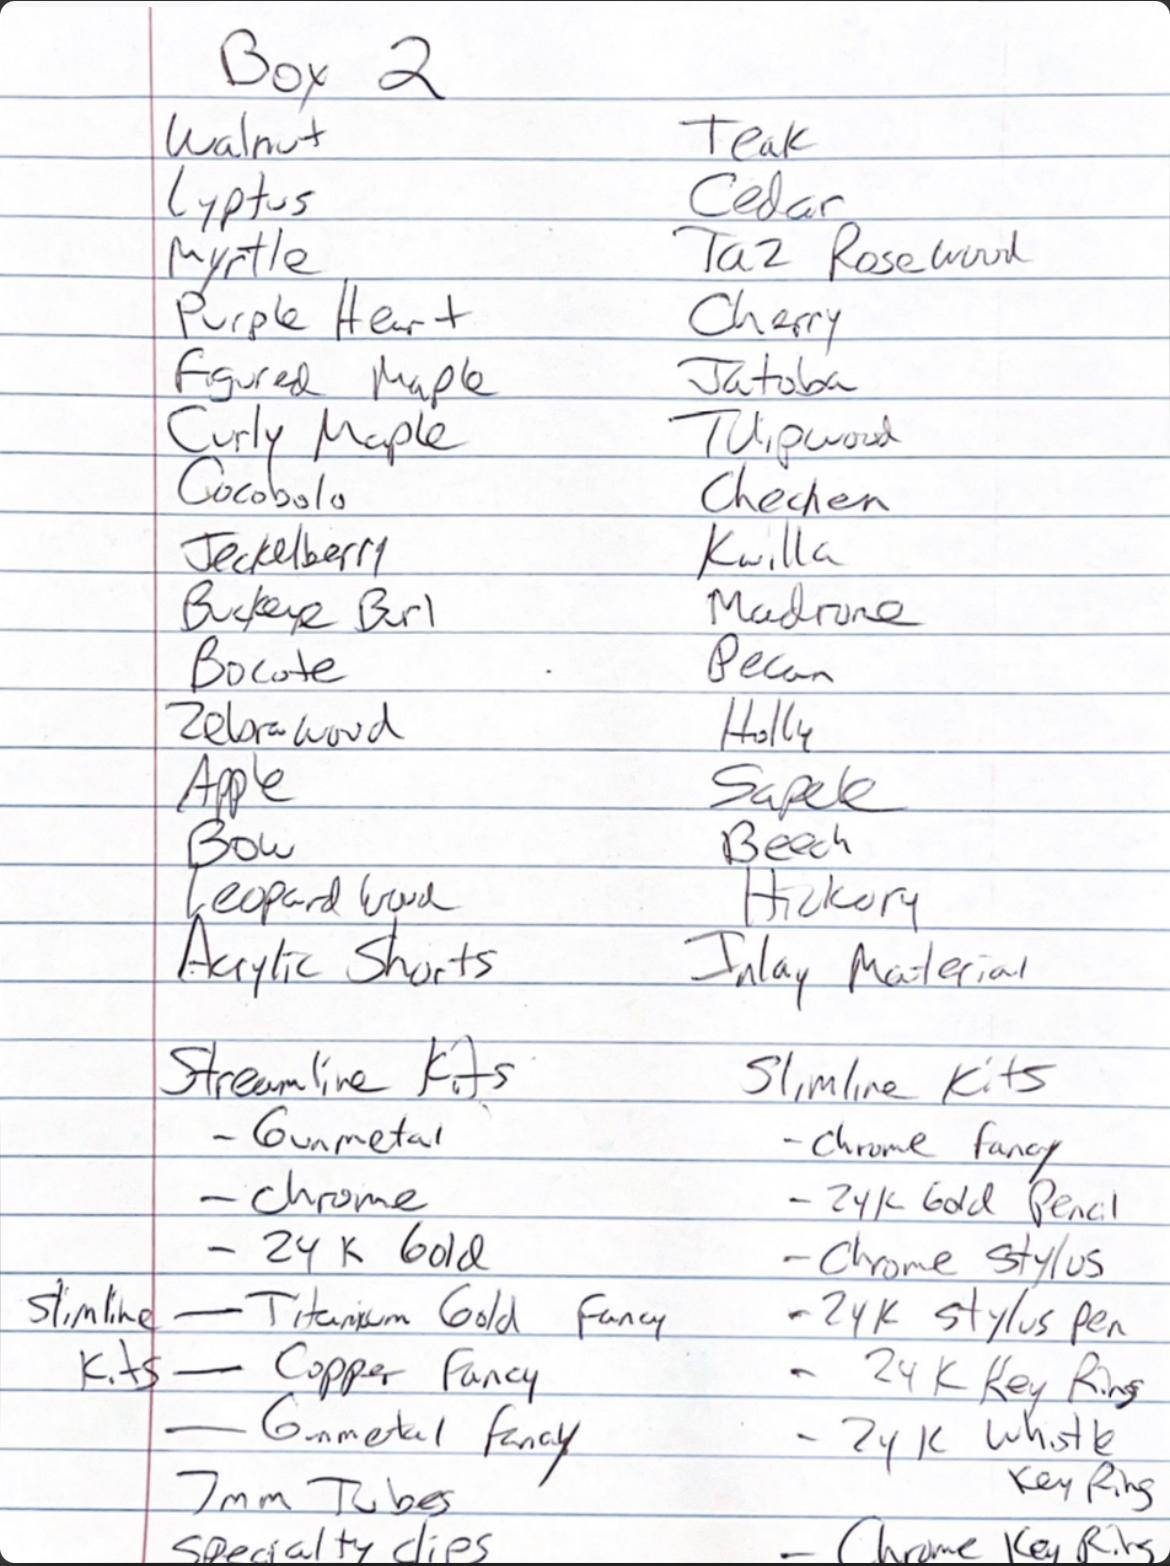 Box 2
Walnut
Lyptus
Myrtle
Purple Heart
Figured Maple
Curly Maple
Cocobolo
Jeckelberry
Buckeye Burl
Bocote
Zebrawood
Apple
Bow
Leopard Wood
Acrylic Shorts
Teak
Cedar
Taz Rosewood
Cherry
Jatoba
Tulipwood
Chechen
Kwilla
Madrone
Pecan
Holly
Sapele
Beech
Hickory
Inlay Material
Streamline Kits
- Gunmetal
- Chrome
- 24 K Gold
Slimline Kits
— Titanium Gold Fancy
— Copper Fancy
— Gunmetal Fancy
7mm Tubes
Specialty clips
Slimline Kits
- Chrome Fancy
- 24K Gold Pencil
- Chrome Stylus
- 24K Stylus Pen
- 24K Key Ring
- 24K Whistle
Key Ring
- Chrome Key Ring